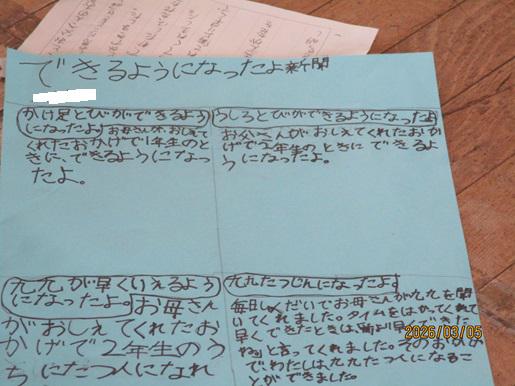 できるようになったよ新聞
かけ足とびができるよう
になったよ お母さんが、おしえて
くれたおかげで1年生のと
きに、できるようになっ
たよ。
うしろとびができるようになったよ
お父さんがおしえてくれたおか
げで2年生のときにできるよ
うになったよ。
九九が早くいえるよう
になったよ。お母さん
がおしえてくれたお
かげで2年生のう
ちにたつ人になれ
九九たつじんになったよ
毎日しくだいでお母さんが九九を聞
いてくれました。タイムをはかってくれて
早くできたときは、「前より早くできた
ね」と言ってくれました。そのおかげ
でわたしは九九たつ人になるこ
とができました。
2026/03/05